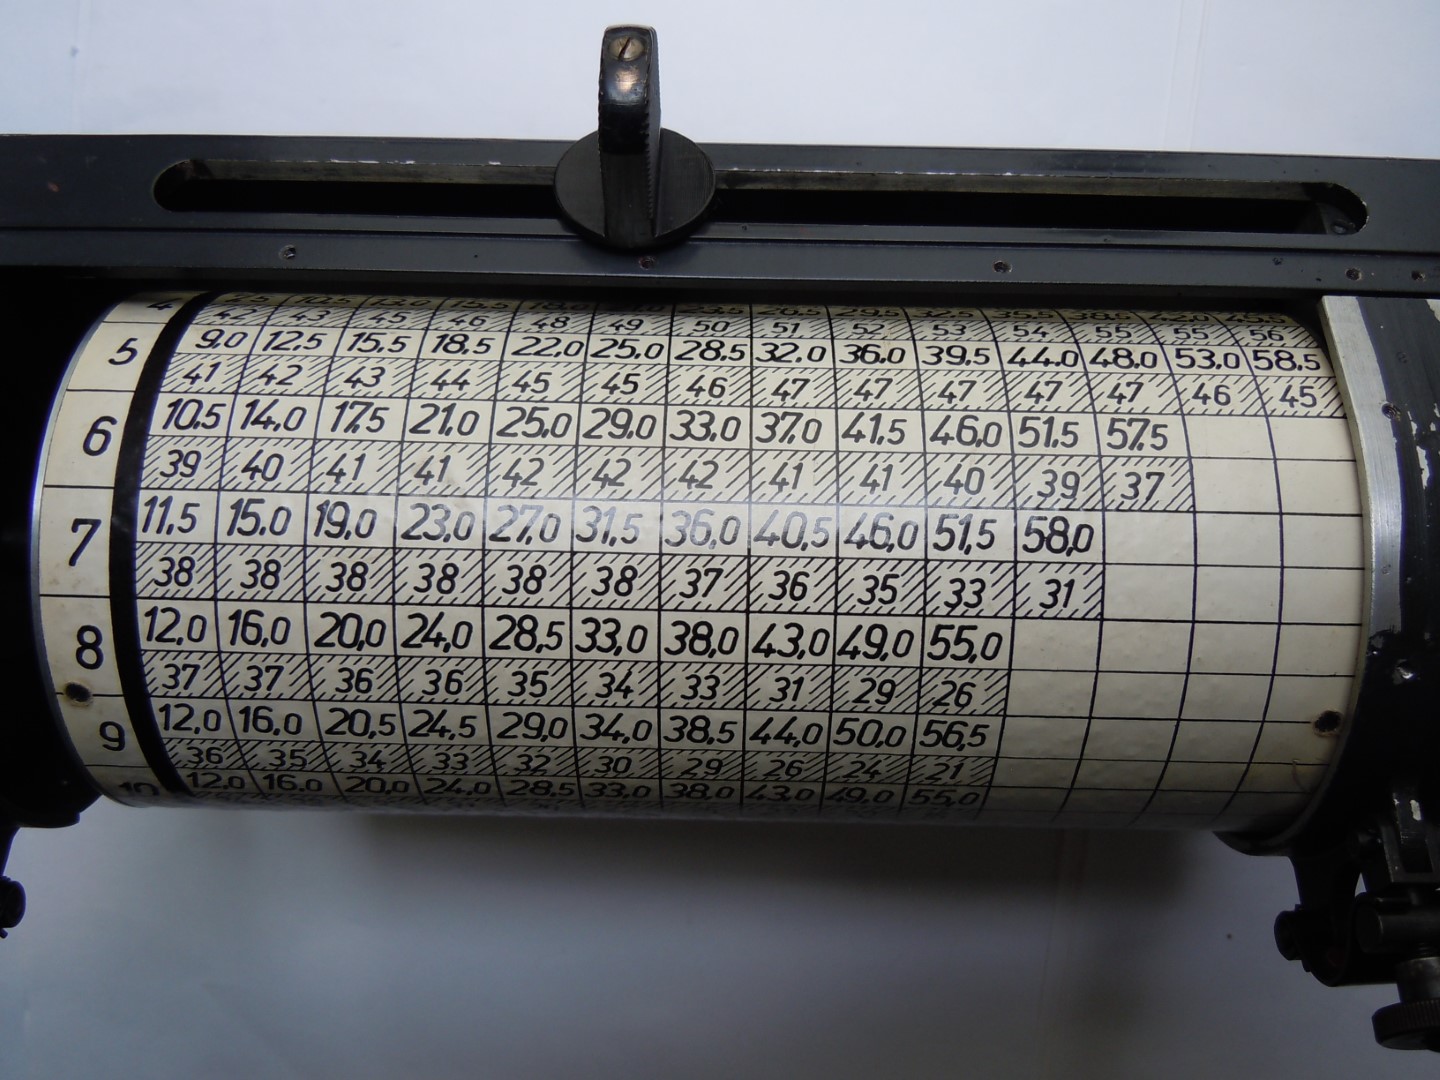 4 7.5 10.5 13.0 15.5 18.0 23. 26.5 29.5 32.5 35.5 38.5 42.0 45.5
42 43 45 46 48 49 50 51 52 53 54 55 55 56
5 9.0 12.5 15.5 18.5 22.0 25.0 28.5 32.0 36.0 39.5 44.0 48.0 53.0 58.5
41 42 43 44 45 45 46 47 47 47 47 47 46 45
6 10,5 14.0 17.5 21.0 25.0 29.0 33.0 37.0 41,5 46.0 51.5 57.5
39 40 41 41 42 42 42 41 41 40 39 37
7 11,5 15.0 19,0 23,0 27,0 31,5 36,0 40,5 46,0 51,5 58,0
38 38 38 38 38 38 37 36 35 33 31
8 12,0 16,0 20,0 24,0 28,5 33,0 38,0 43,0 49,0 55,0
37 37 36 36 35 34 33 31 29 26
9 12,0 16.0 20,5 24,5 29,0 34,0 38,5 44,0 50,0 56,5
36 35 34 33 32 30 29 26 24 21
10 12.0 16.0 20,0 24,0 28,5 33,0 38,0 43,0 49,0 55,0